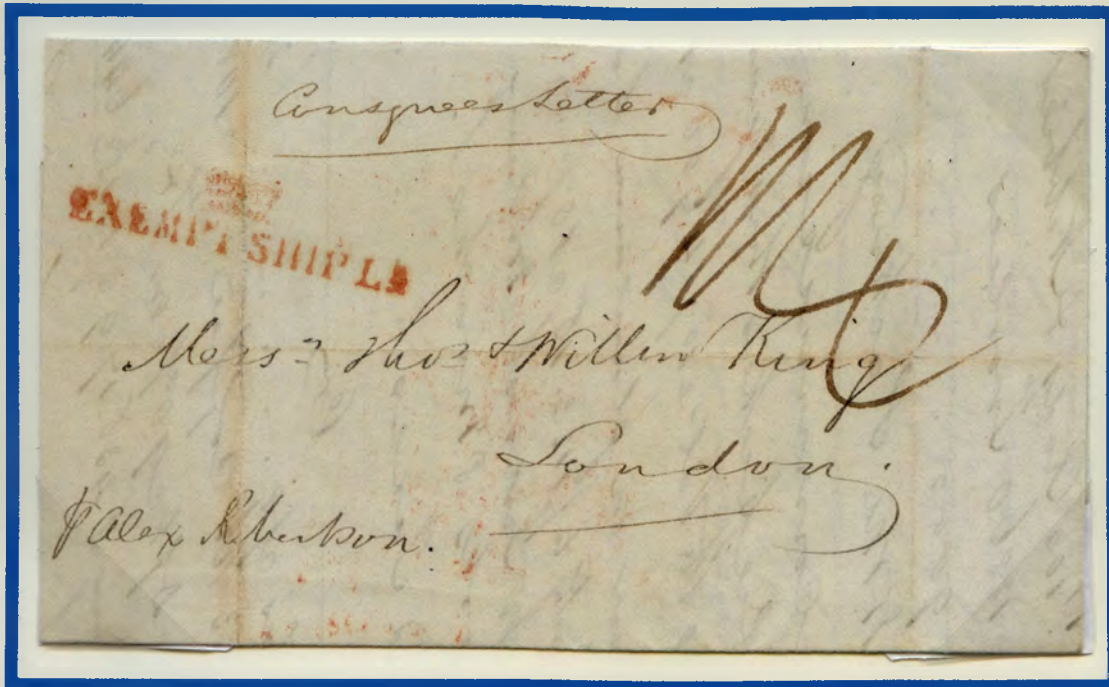 Consignees Letter
EXEMPT SHIP LR
Messrs Thos & Willm King
London.
P Alex Robertson.